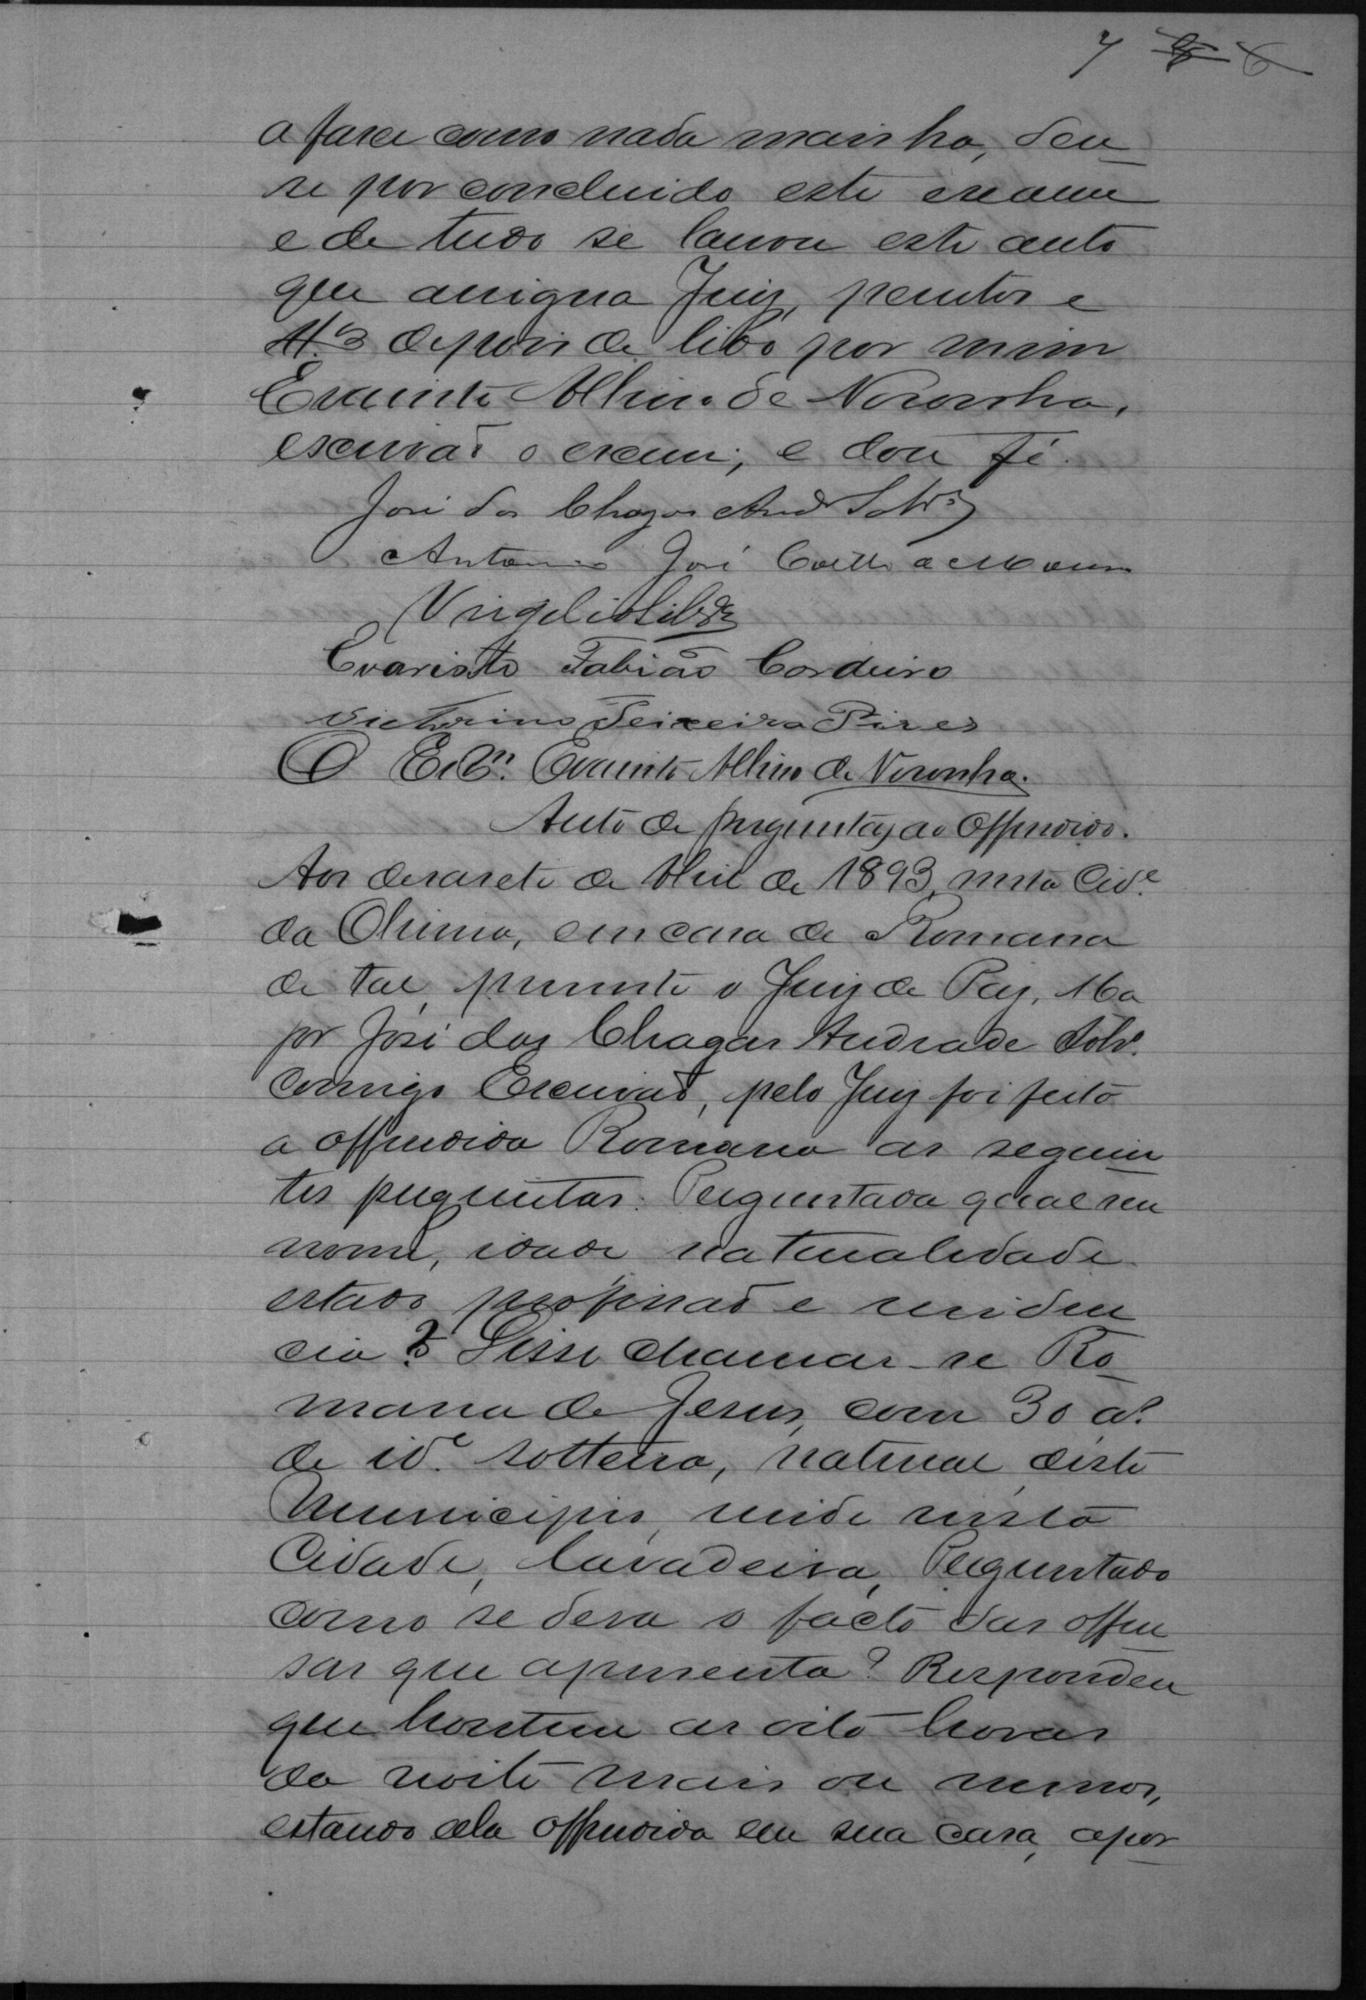 7 8 6
a fazer como nada mais ha, deu-
se por concluido este exame
e de tudo se lavrou este auto
que assigna Juiz, peritos e
tt.as depois de lido por mim
Evaristo Albino de Noronha,
escrivaõ o escrevi, e dou fé.
José das Chagas And.e Sobr.o
Antonio José Coelho de Moura
Virgilio
Evaristo Fabião Cordeiro
Victorino Teixeira Pires
O Escr.m Evaristo Albino de Noronha.
Auto de perguntas ao Offendido.
Aos desasete de Abril de 1893, nesta Cid.e
da Oliveira, em casa de Romana
de tal, presente o Juiz de Paz, Ma
jor José das Chagas Andrade Sobr.o
comigo Escrivaõ, pelo Juiz foi feito
a offendida Romana as seguin
tes perguntas: Perguntada qual seu
nome, idade naturalidade
estado profissaõ e residen
cia? Disse chamar-se Ro-
mana de Jesus, com 30 a.s
de id.e solteira, natural deste
Municipio, reside nesta
Cidade, lavadeira, Perguntado
como se dera o facto das offen
sas que apresenta? Respondeu
que hontem as oito horas
da noite mais ou menos,
estando ela offendida em sua casa, apor-